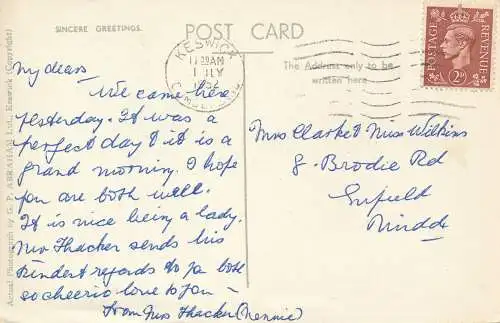 SINCERE GREETINGS.
POST CARD
The Address only to be
written here
KESWICK
JULY
CUMBERLAND
POSTAGE
REVENUE
2D
Actual Photograph by G. P. ABRAHAM Ltd., Keswick (Copyright)
My dears
We came here
yesterday. It was a
perfect day & it is a
grand morning. I hope
you are both well.
It is nice being a lady.
Mr Thacker sends his
kindest regards to you both
so cheerio love to you -
from Mrs Thacker (Nennie)
Mrs Clarke & Miss Wilkins
8. Brodie Rd
Enfield
Middx